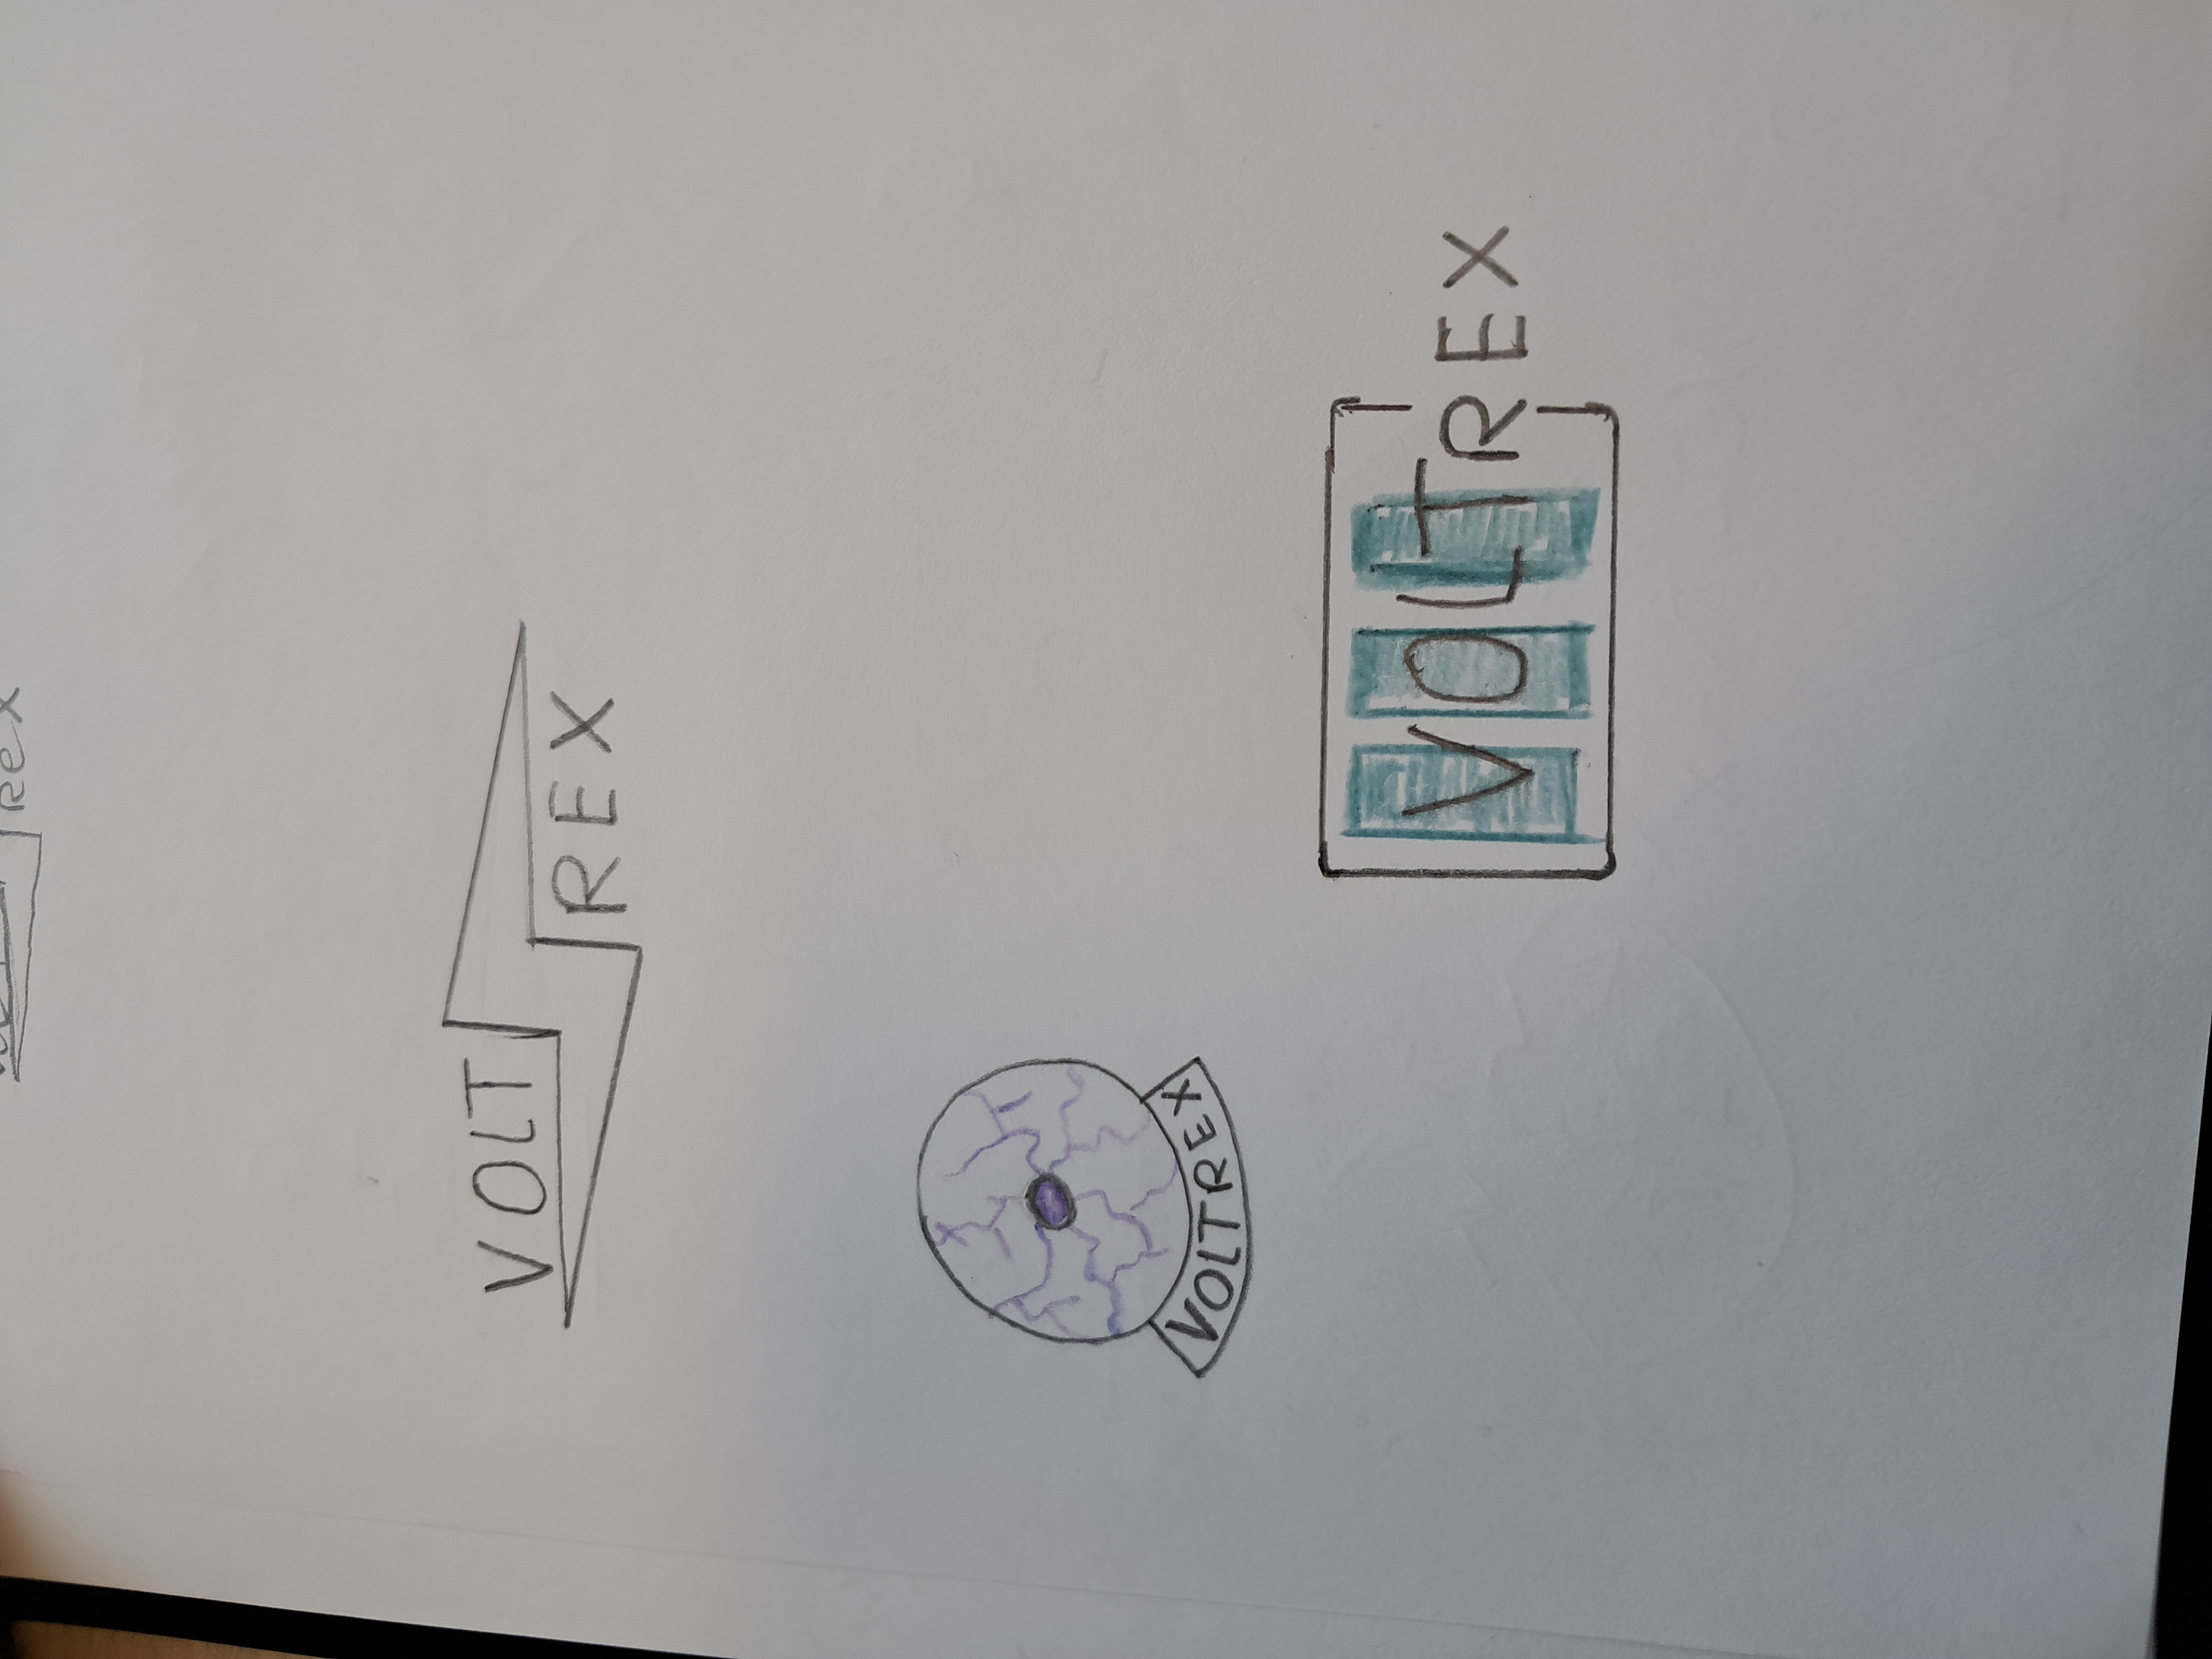 Rex
VOLT
REX
VOLTREX
VOLTREX